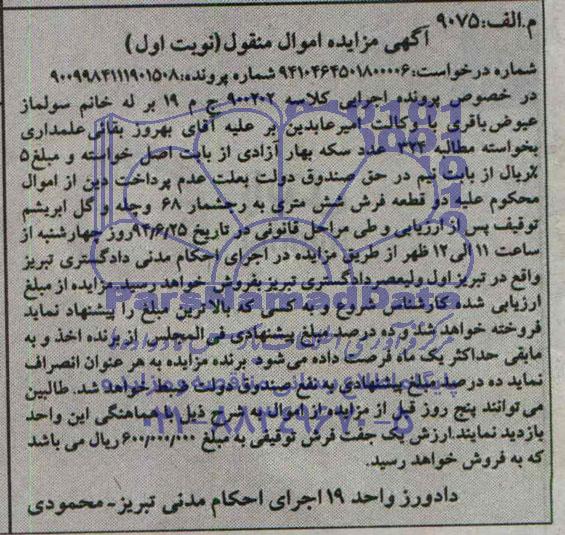 م.الف:۹۰۷۵
آگهی مزایده اموال منقول (نوبت اول)
شماره درخواست: ۹۴۱۰۴۶۴۵۰۱۸۰۰۰۰۶ شماره پرونده: ۹۰۰۹۹۸۴۱۱۱۹۰۱۵۰۸
در خصوص پرونده اجرایی کلاسه ۹۰۰۲۰۲ ج م ۱۹ بر له خانم سولماز
عیوض باقری با وکالت میرعابدین بر علیه آقای بهروز بقائی علمداری
بخواسته مطالبه ۳۲۴ عدد سکه بهار آزادی از بابت اصل خواسته و مبلغ ۵
٪ریال از بابت نیم در حق صندوق دولت بعلت عدم پرداخت دین از اموال
محکوم علیه دو قطعه فرش شش متری به رجشمار ۶۸ وچله و گل ابریشم
توقیف پس از ارزیابی و طی مراحل قانونی در تاریخ ۹۴/۶/۲۵ روز چهارشنبه از
ساعت ۱۱ الی ۱۲ ظهر از طریق مزایده در اجرای احکام مدنی دادگستری تبریز
واقع در تبریز اول ولیعصر دادگستری تبریز بفروش خواهد رسید. مزایده از مبلغ
ارزیابی شده کارشناس شروع و به کسی که بالاترین مبلغ را پیشنهاد نماید
فروخته خواهد شد. ده درصد مبلغ پیشنهادی فی المجلس از برنده اخذ و به
مابقی حداکثر یک ماه فرصت داده می شود. برنده مزایده به هر عنوان انصراف
نماید ده درصد مبلغ پیشنهادی به نفع صندوق دولت ضبط خواهد شد. طالبین
می توانند پنج روز قبل از مزایده از اموال به شرح ذیل با هماهنگی این واحد
بازدید نمایند. ارزش یک جفت فرش توقیفی به مبلغ ۶۰۰/۰۰۰/۰۰۰ ریال می باشد
که به فروش خواهد رسید.
دادورز واحد ۱۹ اجرای احکام مدنی تبریز - محمودی
ParsNamadData
پایگاه اطلاع رسانی مناقصه و مزایده
۰۲۱-۸۸۳۴۹۶۷۰-۵